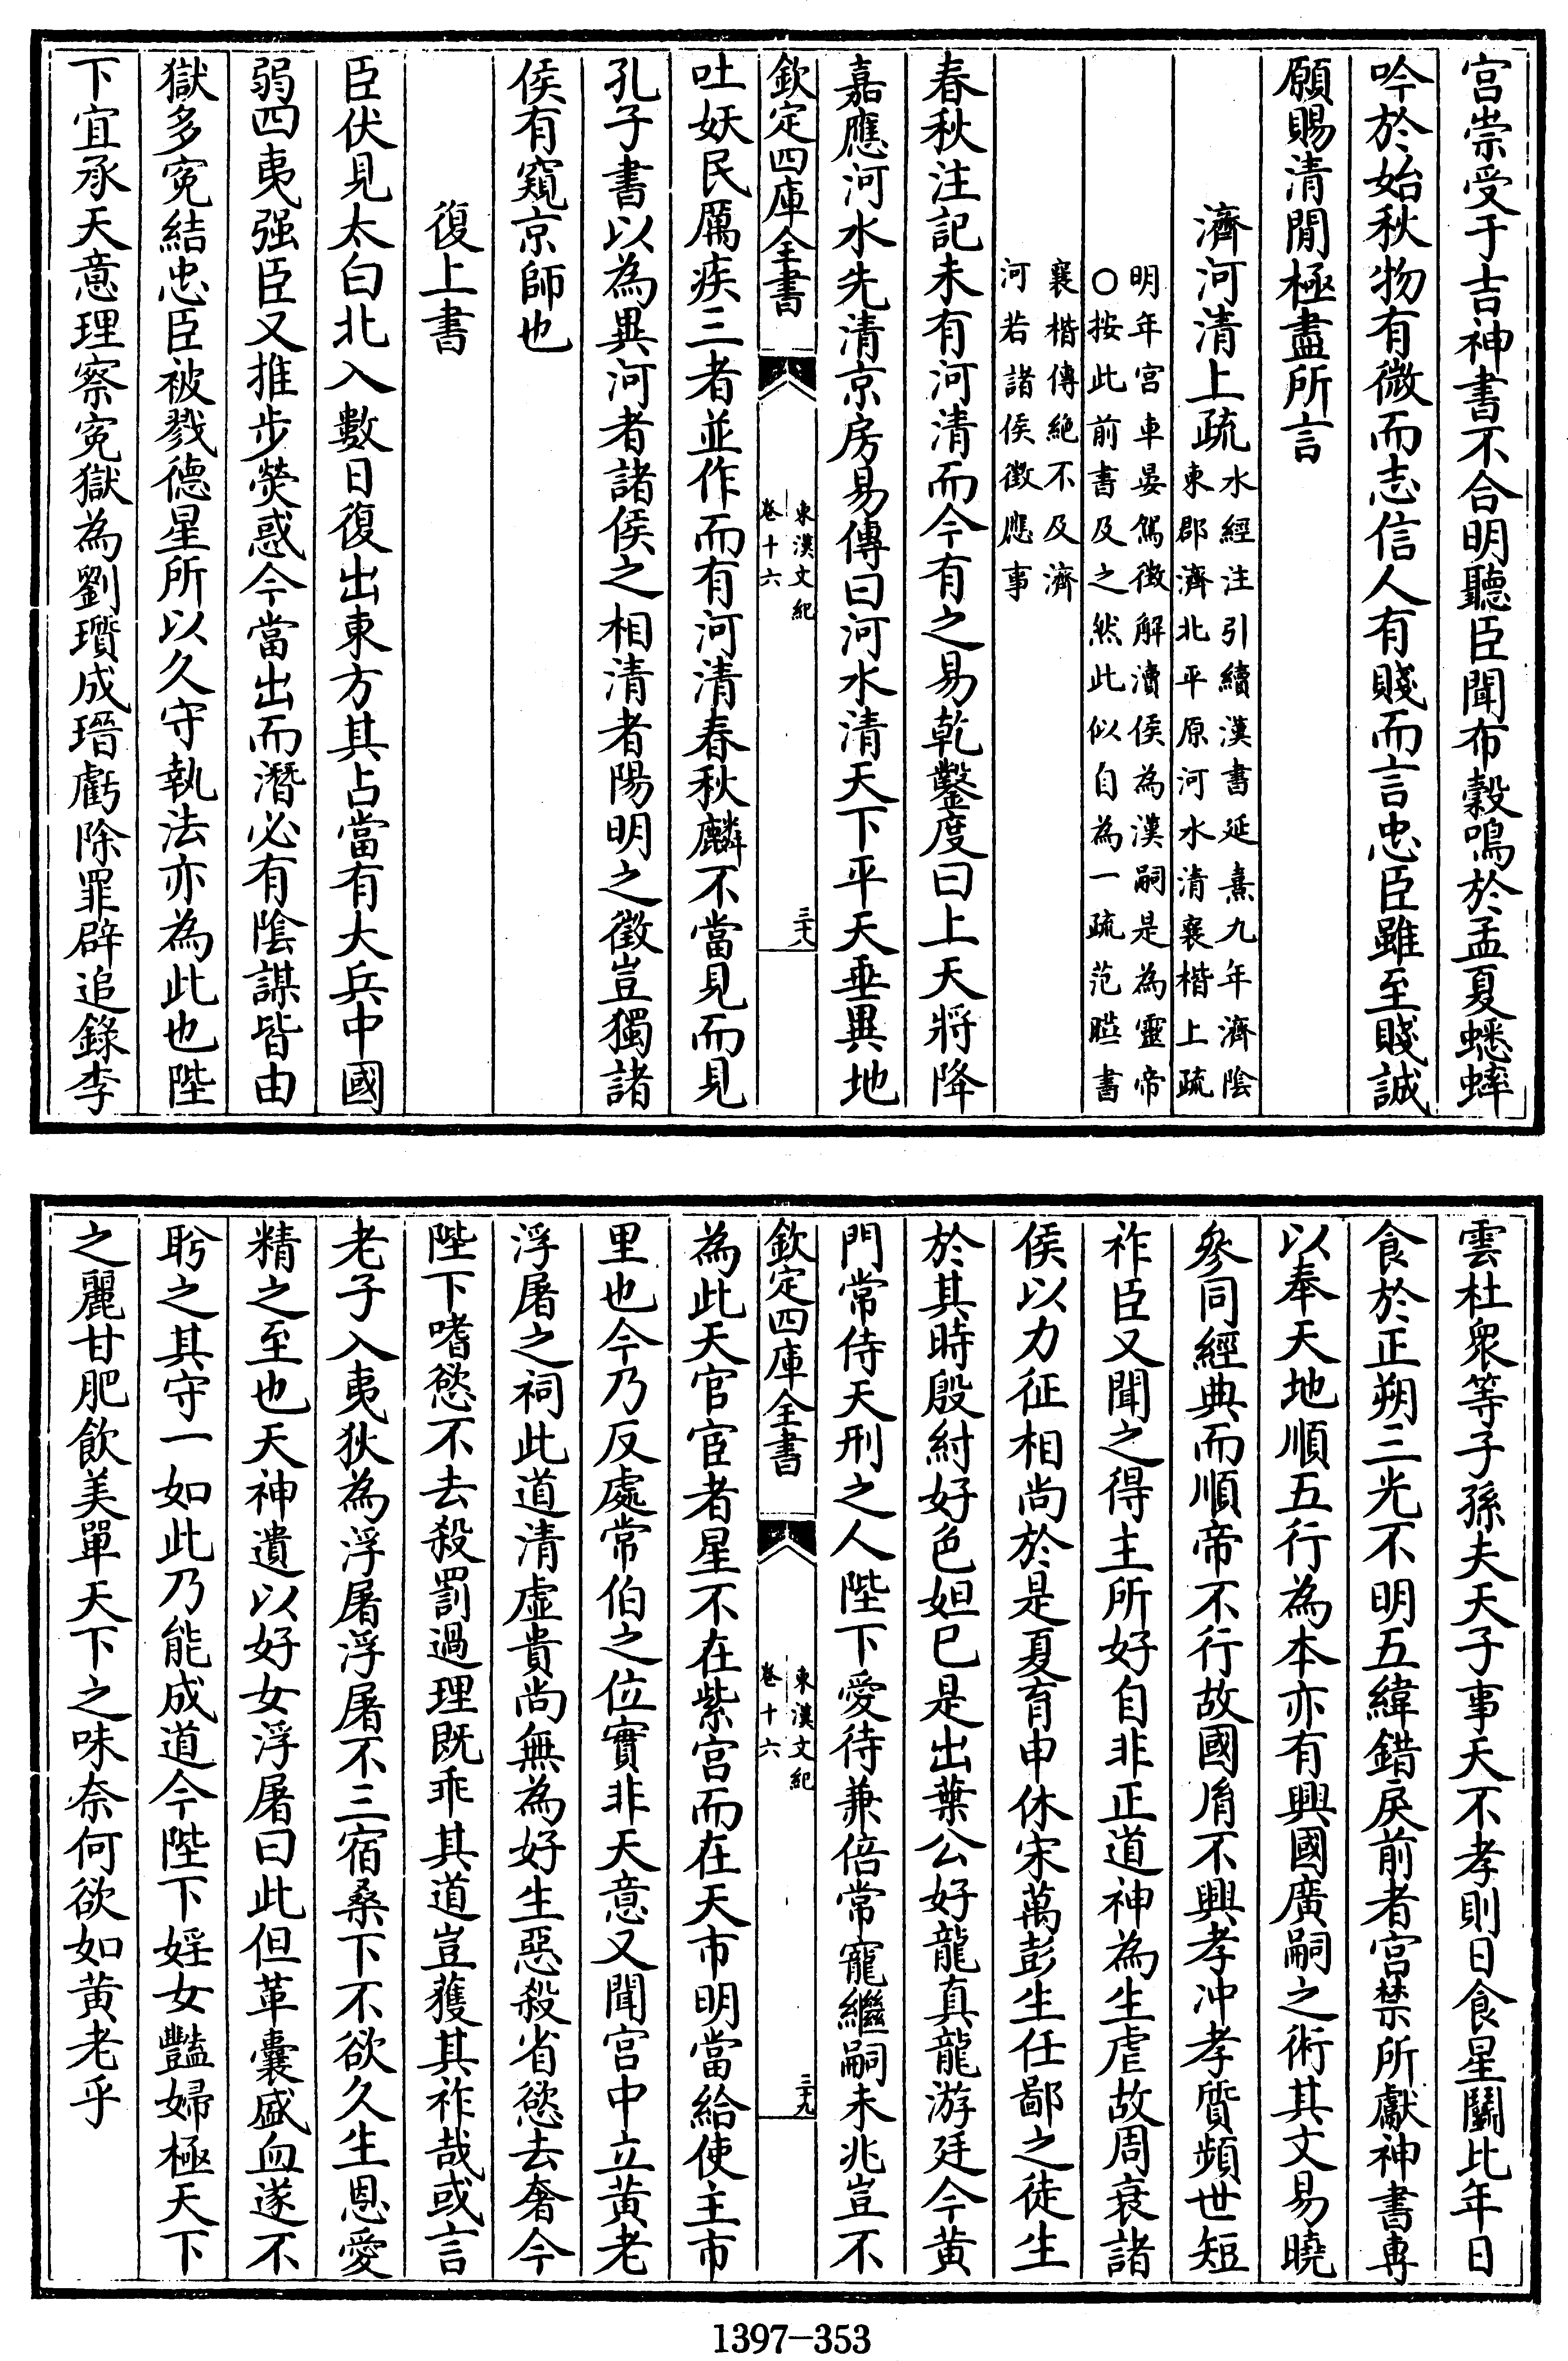 宫崇受于吉神書不合明聽臣聞布糓鳴於孟夏蟋蟀
吟於始秋物有微而志信人有賤而言忠臣雖至賤誠
願賜清閒極盡所言
濟河清上疏
水經注引續漢書延熹九年濟陰
東郡濟北平原河水清襄楷上疏
明年宫車晏駕徴解瀆侯為漢嗣是為靈帝
○按此前書及之然此似自為一疏范曄書
襄楷傳絶不及濟
河若諸侯徴應事
春秋注記未有河清而今有之易乾鑿度曰上天將降
嘉應河水先清京房易傳曰河水清天下平天垂異地
欽定四庫全書
東漢文紀
卷十六
三十八
吐妖民厲疾三者並作而有河清春秋麟不當見而見
孔子書以為異河者諸侯之相清者陽明之徵豈獨諸
侯有窺京師也
復上書
臣伏見太白北入數日復出東方其占當有大兵中國
弱四夷强臣又推步熒惑今當出而潛必有陰謀皆由
獄多寃結忠臣被戮德星所以久守執法亦為此也陛
下宜承天意理察寃獄為劉瓆成瑨虧除罪辟追錄李
雲杜衆等子孫夫天子事天不孝則日食星鬭比年日
食於正朔三光不明五緯錯戾前者宫禁所獻神書専
以奉天地順五行為本亦有興國廣嗣之術其文易曉
參同經典而順帝不行故國胤不興孝冲孝質頻世短
祚臣又聞之得主所好自非正道神為生虐故周衰諸
侯以力征相尚於是夏育申休宋萬彭生任鄙之徒生
於其時殷紂好色妲已是出葉公好龍真龍游廷今黄
門常侍天刑之人陛下愛待兼倍常寵繼嗣未兆豈不
欽定四庫全書
東漢文紀
卷十六
三十九
為此天官宦者星不在紫宫而在天市明當給使主市
里也今乃反處常伯之位實非天意又聞宫中立黄老
浮屠之祠此道清虚貴尚無為好生惡殺省慾去奢今
陛下嗜慾不去殺罰過理既乖其道豈獲其祚哉或言
老子入夷狄為浮屠浮屠不三宿桑下不欲久生恩愛
精之至也天神遺以好女浮屠曰此但革囊盛血遂不
盻之其守一如此乃能成道今陛下婬女豔婦極天下
之麗甘肥飲美單天下之味奈何欲如黄老乎
1397-353